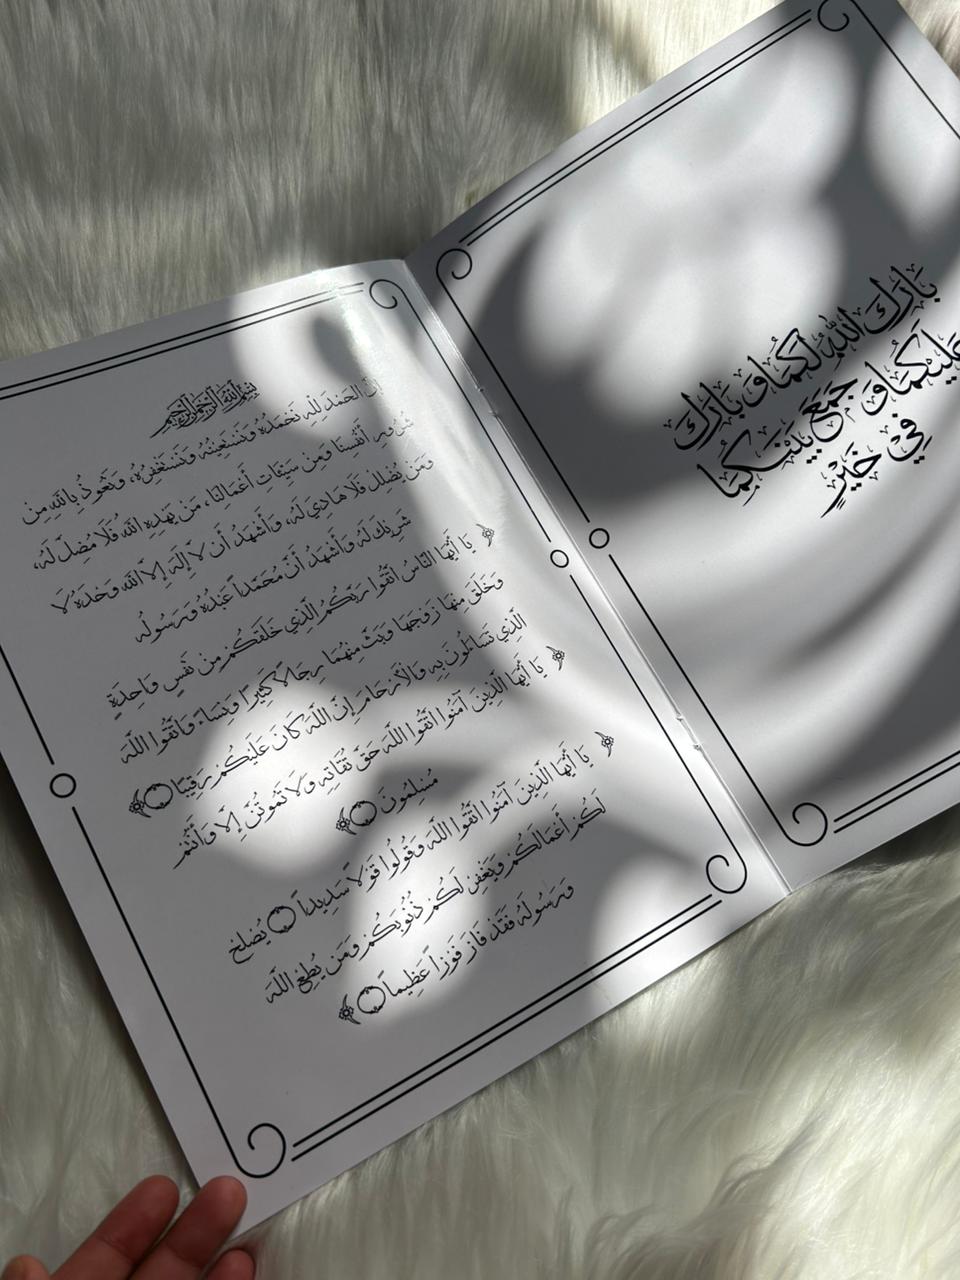 بَارَكَ اللهُ لَكُمَا وَبَارَكَ
عَلَيْكُمَا وَ جَمَعَ بَيْنَكُمَا
فِي خَيْرٍ
بسم الله الرحمن الرحيم
إنَّ الحَمْدَ لِلهِ نَحْمَدُهُ وَنَسْتَعِينُهُ وَنَسْتَغْفِرُهُ، وَنَعُوذُ بِاللهِ مِن
شُرُورِ أَنْفُسِنَا وَمِنْ سَيِّئَاتِ أَعْمَالِنَا، مَن يَهْدِهِ اللهُ فَلَا مُضِلَّ لَهُ،
وَمَن يُضْلِل فَلَا هَادِيَ لَهُ، وَأَشْهَدُ أَن لاَّ إِلَهَ إِلاَّ اللهُ وَحْدَهُ لاَ
شَرِيكَ لَهُ وَأَشْهَدُ أَنَّ مُحَمَّداً عَبْدُهُ وَرَسُولُه
﴿ يَا أَيُّهَا النَّاسُ اتَّقُوا رَبَّكُمُ الَّذِي خَلَقَكُم مِّن نَّفْسٍ وَاحِدَةٍ
وَخَلَقَ مِنْهَا زَوْجَهَا وَبَثَّ مِنْهُمَا رِجَالًا كَثِيرًا وَنِسَاءً وَاتَّقُوا اللَّهَ
الَّذِي تَسَاءَلُونَ بِهِ وَالْأَرْحَامَ إِنَّ اللَّهَ كَانَ عَلَيْكُمْ رَقِيبًا ﴾
﴿ يَا أَيُّهَا الَّذِينَ آمَنُوا اتَّقُوا اللَّهَ حَقَّ تُقَاتِهِ وَلَا تَمُوتُنَّ إِلَّا وَأَنْتُم
مُّسْلِمُونَ ﴾
﴿ يَا أَيُّهَا الَّذِينَ آمَنُوا اتَّقُوا اللَّهَ وَقُولُوا قَوْلاً سَدِيداً يُصْلِحْ
لَكُمْ أَعْمَالَكُمْ وَيَغْفِرْ لَكُمْ ذُنُوبَكُمْ وَمَن يُطِعْ اللَّهَ
وَرَسُولَهُ فَقَدْ فَازَ فَوْزاً عَظِيماً ﴾